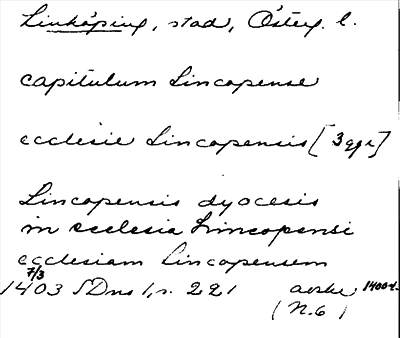 Linköping, stad, Österg. l.
capitulum Lincopense
ecclesie Lincopensis [3 ggr]
Lincopensis dyocesis
in ecclesia Lincopensi
ecclesiam Lincopensem
7/3
1403 SDns 1, s. 221 avskr. 1400-t.
(N.6)